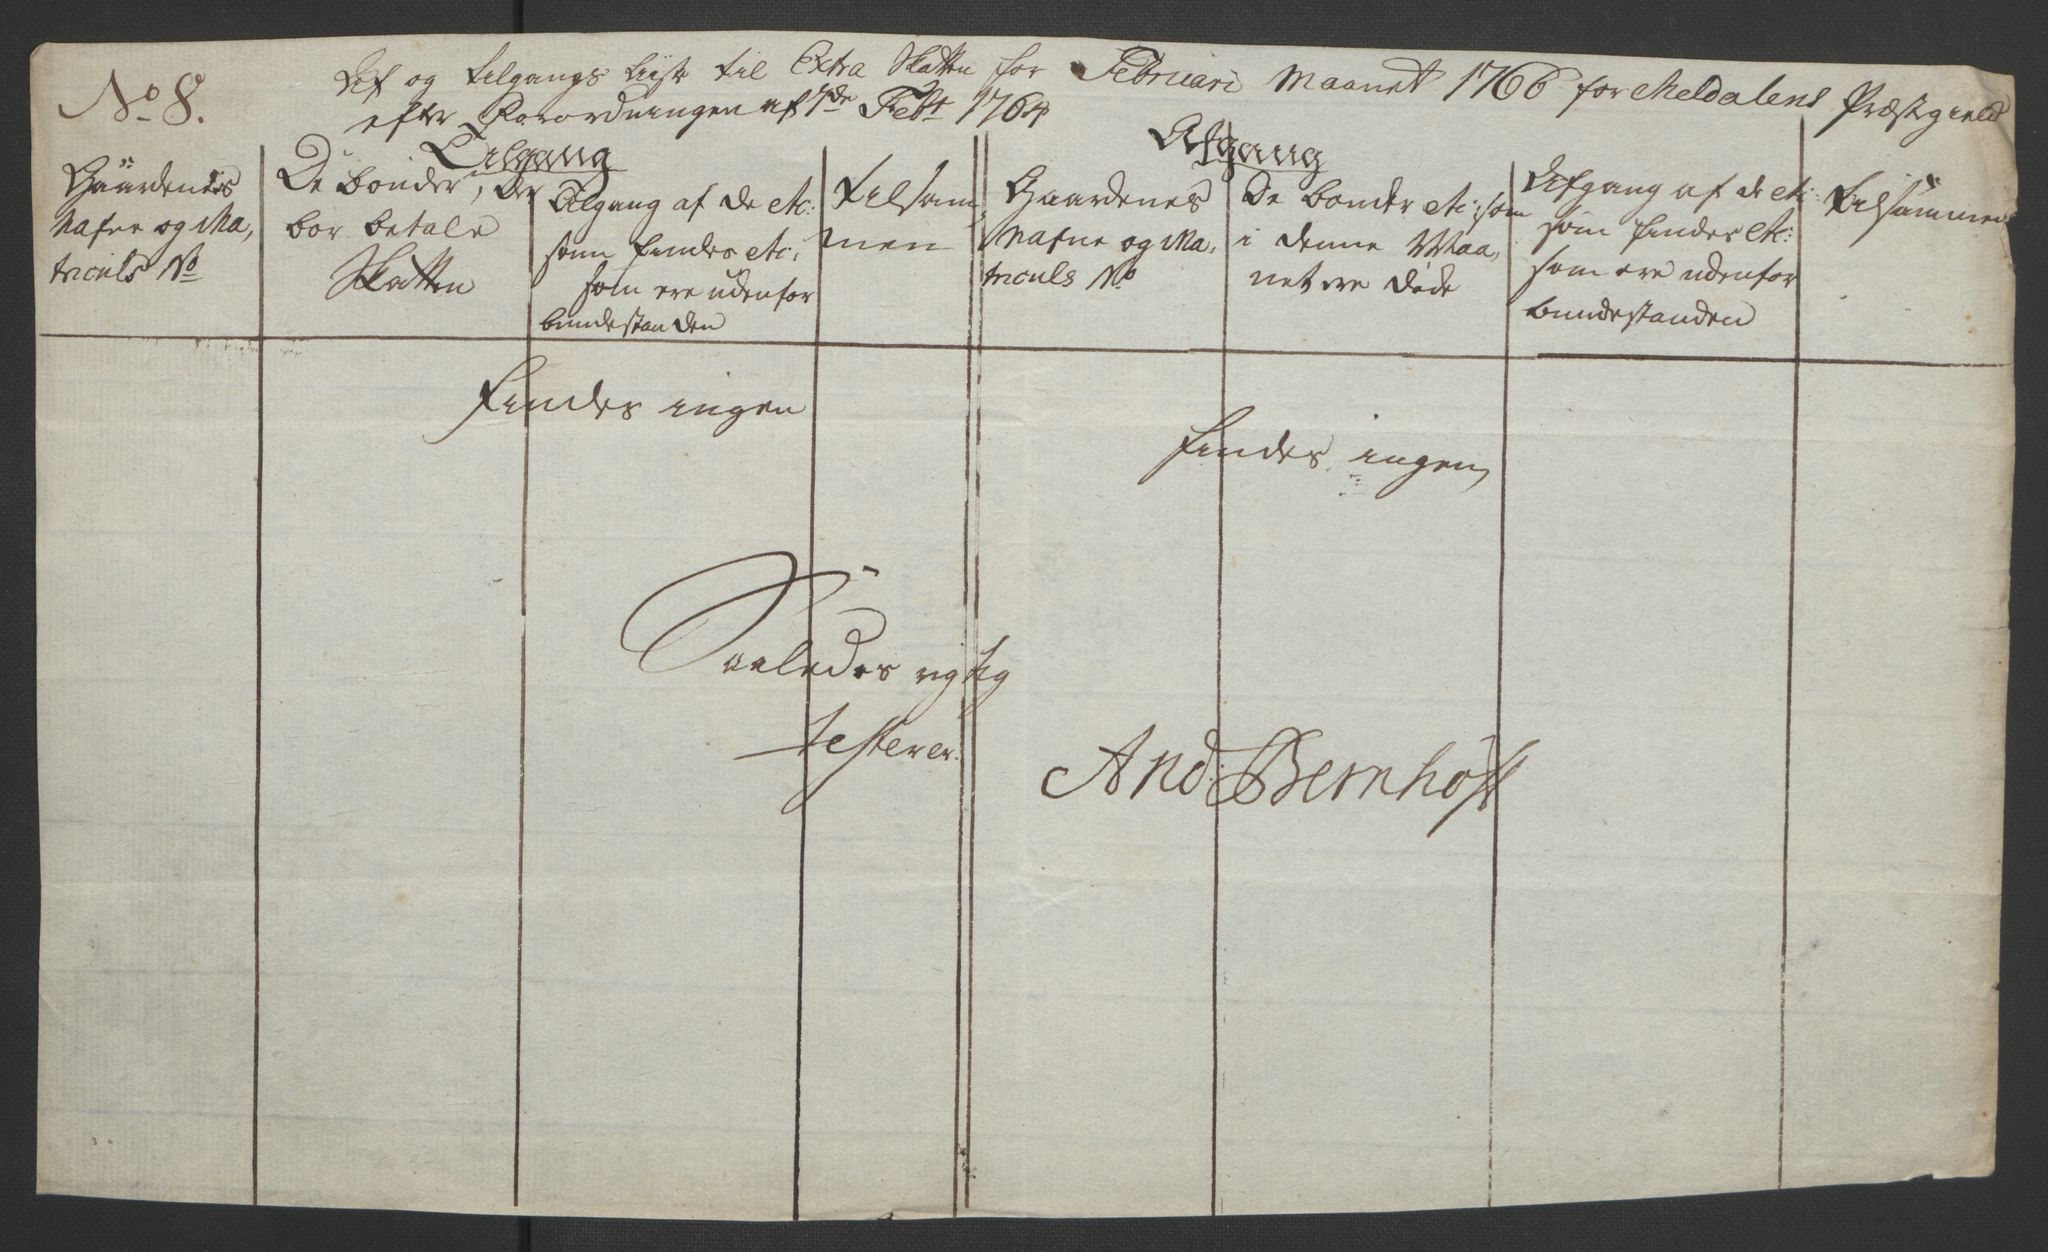 No 8.
Af og tilgangs Liste til Extra Skatten for Februari Maanet 1766 for Meldalens Præstegield
efter Forordningen af 7de Febr 1764
Tilgang
Afgang
Gaardenes
Nafne og Ma,
triculs No
De bønder, der
bør betale
Skatten
Tilgang af de etc:
som findes etc:
som ere uden for
bundestanden
Tilsam,
men
Gaardenes
Nafne og Ma,
triculs No
De bønder etc: som
i denne Maa,
net ere døde
Afgang af de etc:
som findes etc:
som ere uden for
bundestanden
Tilsammen
Findes ingen
Findes ingen
Saaledes rigtig
testerer
And: Bernhoft